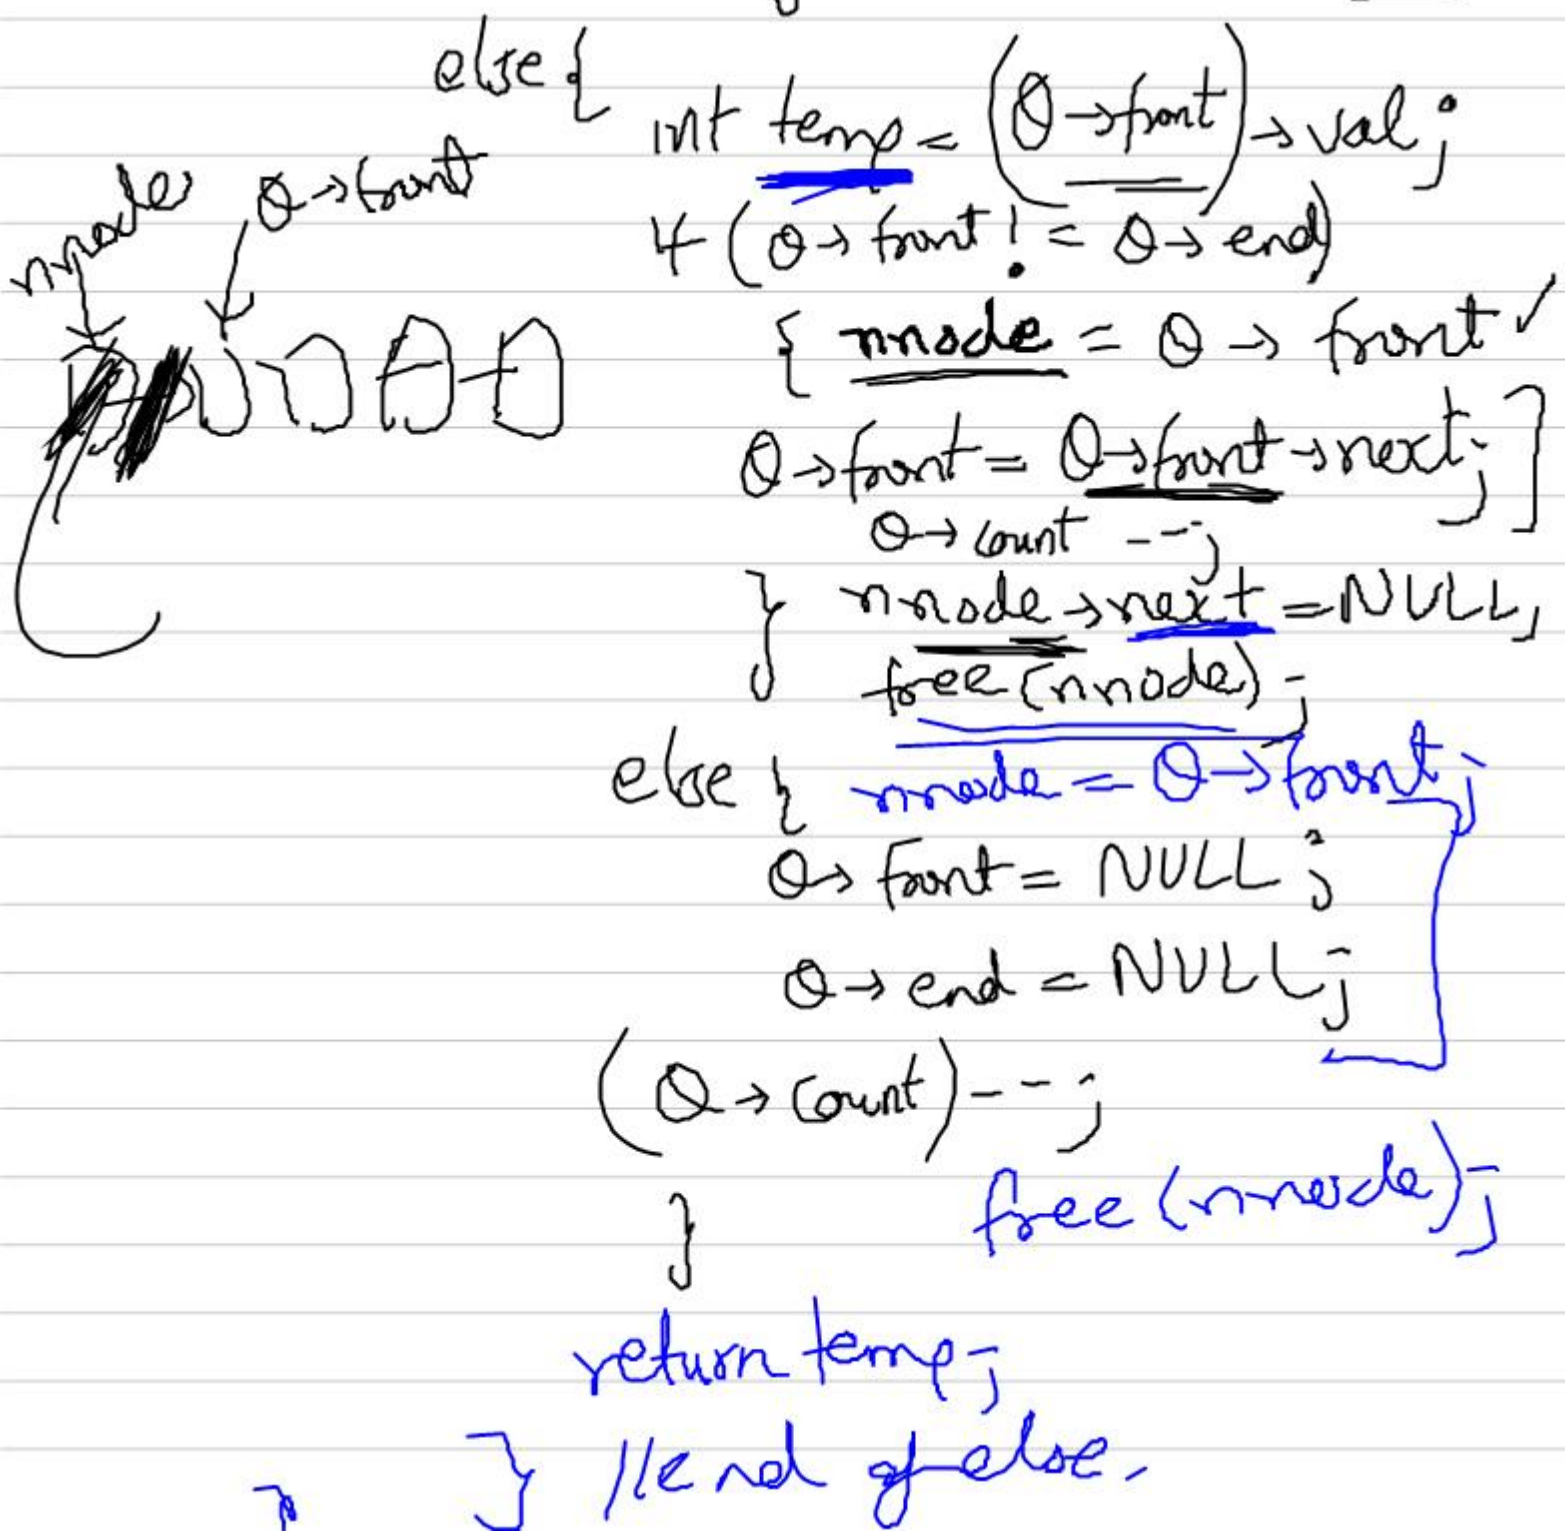 else {
int temp = (Q→front)→val;
if (Q→front != Q→end)
nnode Q→front
{ nnode = Q→front ✓
Q→front = Q→front→next; ]
Q→count --;
} nnode→next = NULL;
free(nnode);
else { nnode = Q→front;
Q→front = NULL;
Q→end = NULL;
(Q→count)--;
free(nnode);
}
return temp;
} //end of else.
}